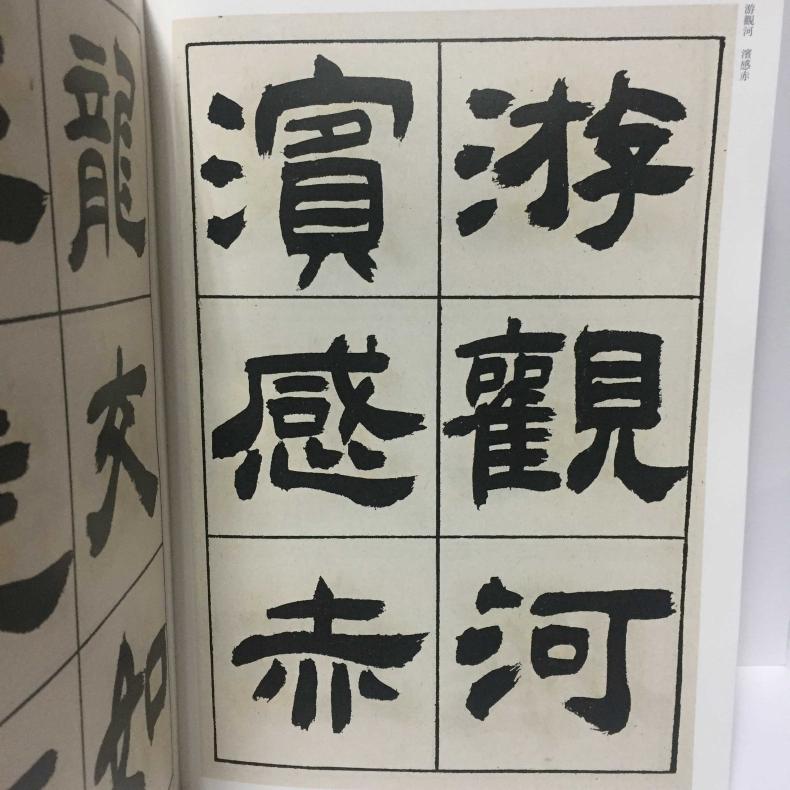 游觀河 濱感赤
游觀河
濱感赤
龍
交
如